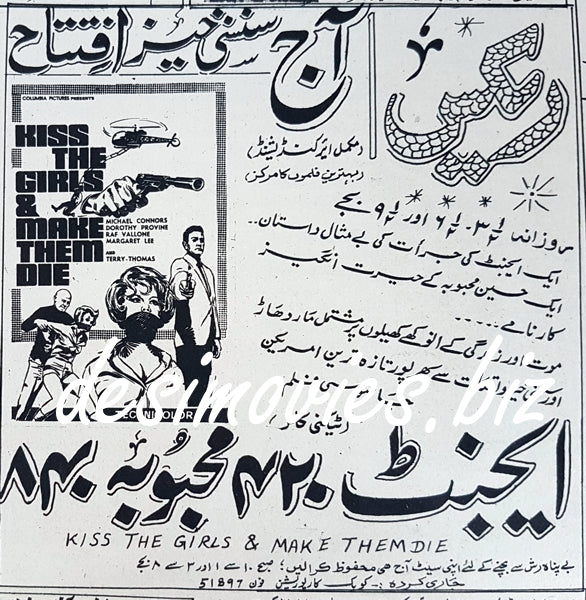 آج
سنسنی خیز افتتاح
ریکس
(مکمل ایرکنڈیشنڈ)
(بہترین فلموں کا مرکز)
روزانہ ۳½، ۶½ اور ۹½ بجے
ایک ایجنٹ کی جرأت کی بے مثال داستان..
ایک حسین محبوبہ کے حیرت انگیز
کارنامے.....
موت اور زندگی کے انوکھے کھیلوں پر مشتمل مار دھاڑ
سے بھرپور تازہ ترین امریکن
COLUMBIA PICTURES PRESENTS
KISS
THE
GIRLS
&
MAKE
THEM
DIE
MICHAEL CONNORS
DOROTHY PROVINE
RAF VALLONE
MARGARET LEE
AND
TERRY-THOMAS
desimovies.biz
ایجنٹ ۴۲۰ محبوبہ ۸۴۰
KISS THE GIRLS & MAKE THEM DIE
بے پناہ رش سے بچنے کے لئے اپنی سیٹ آج ہی محفوظ کرالیں؛ صبح ۱۰ سے ۱ اور ۲ سے ۸ بجے
جاری کردہ :- کوپک کارپوریشن فون 51897